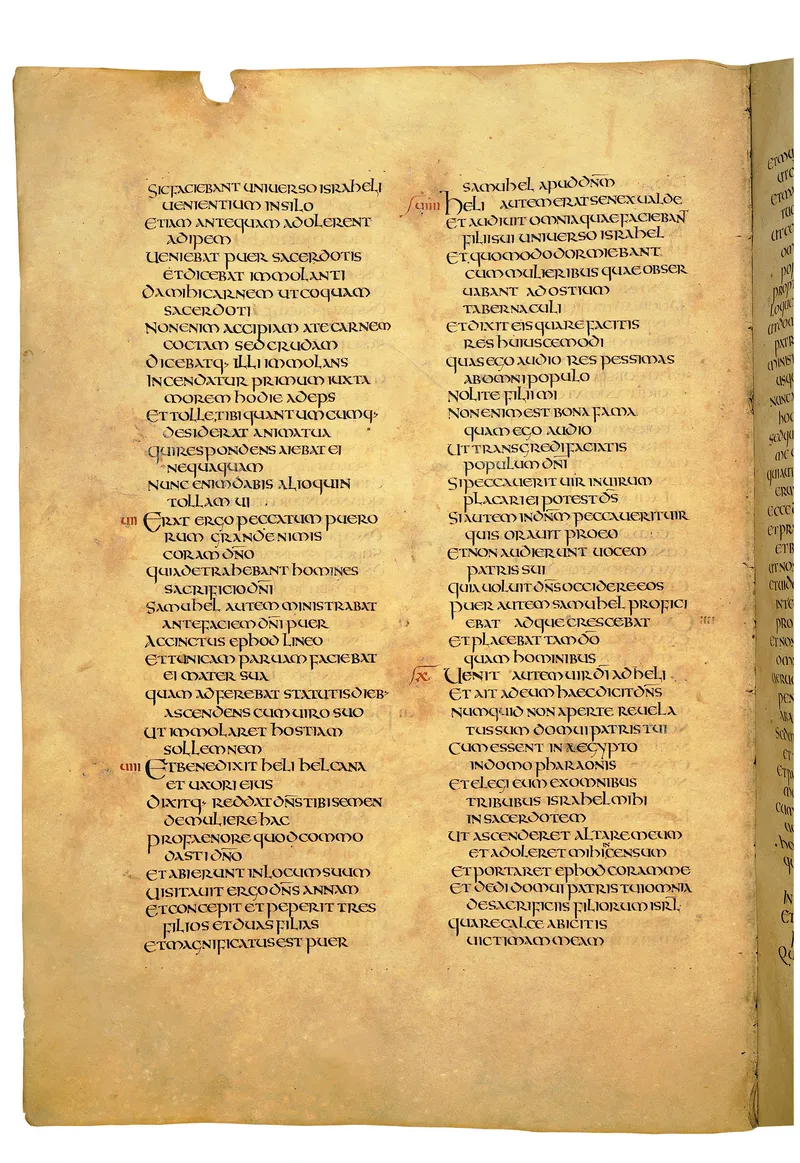 SIC FACIEBANT UNIUERSO ISRAHELI
UENIENTIUM IN SILO
ETIAM ANTEQUAM ADOLERENT
ADIPEM
UENIEBAT PUER SACERDOTIS
ET DICEBAT IMMOLANTI
DA MIHI CARNEM UT COQUAM
SACERDOTI
NON ENIM ACCIPIAM A TE CARNEM
COCTAM SED CRUDAM
DICEBATQ· ILLI IMMOLANS
INCENDATUR PRIMUM IUXTA
MOREM HODIE ADEPS
ET TOLLE TIBI QUANTUMCUMQ·
DESIDERAT ANIMA TUA
QUI RESPONDENS AIEBAT EI
NEQUAQUAM
NUNC ENIM DABIS ALIOQUIN
TOLLAM UI
UII ERAT ERGO PECCATUM PUERO
RUM GRANDE NIMIS
CORAM DÑO
QUIA DETRAHEBANT HOMINES
SACRIFICIO DÑI
SAMUHEL AUTEM MINISTRABAT
ANTE FACIEM DÑI PUER
ACCINCTUS EPHOD LINEO
ET TUNICAM PARUAM FACIEBAT
EI MATER SUA
QUAM ADFEREBAT STATUTIS DIEB·
ASCENDENS CUM UIRO SUO
UT IMMOLARET HOSTIAM
SOLLEMNEM
UIII ET BENEDIXIT HELI HELCANA
ET UXORI EIUS
DIXITQ· REDDAT DÑS TIBI SEMEN
DE MULIERE HAC
PRO FAENORE QUOD COMMO
DASTI DÑO
ET ABIERUNT IN LOCUM SUUM
UISITAUIT ERGO DÑS ANNAM
ET CONCEPIT ET PEPERIT TRES
FILIOS ET DUAS FILIAS
ET MAGNIFICATUS EST PUER
SAMUHEL APUD DÑM
UIIII HELI AUTEM ERAT SENEX UALDE
ET AUDIUIT OMNIA QUAE FACIEBAÑ
FILII SUI UNIUERSO ISRAHEL
ET QUOMODO DORMIEBANT
CUM MULIERIBUS QUAE OBSER
UABANT AD OSTIUM
TABERNACULI
ET DIXIT EIS QUARE FACITIS
RES HUIUSCEMODI
QUAS EGO AUDIO RES PESSIMAS
AB OMNI POPULO
NOLITE FILII MI
NON ENIM EST BONA FAMA
QUAM EGO AUDIO
UT TRANSGREDI FACIATIS
POPULUM DÑI
SI PECCAUERIT UIR IN UIRUM
PLACARI EI POTEST D̄S
SI AUTEM IN DÑM PECCAUERIT UIR
QUIS ORAUIT PRO EO
ET NON AUDIERUNT UOCEM
PATRIS SUI
QUIA UOLUIT DÑS OCCIDERE EOS
PUER AUTEM SAMUHEL PROFICI
EBAT ADQUE CRESCEBAT
ET PLACEBAT TAM D̄O
QUAM HOMINIBUS
X UENIT AUTEM UIR D̄I AD HELI
ET AIT AD EUM HAEC DICIT DÑS
NUMQUID NON APERTE REUELA
TUS SUM DOMUI PATRIS TUI
CUM ESSENT IN AEGYPTO
IN DOMO PHARAONIS
ET ELEGI EUM EX OMNIBUS
TRIBUBUS ISRAHEL MIHI
IN SACERDOTEM
UT ASCENDERET ALTARE MEUM
ET ADOLERET MIHI INCENSUM
ET PORTARET EPHOD CORAM ME
ET DEDI DOMUI PATRIS TUI OMNIA
DE SACRIFICIIS FILIORUM ISRL̄
QUARE CALCE ABICITIS
UICTIMAM MEAM